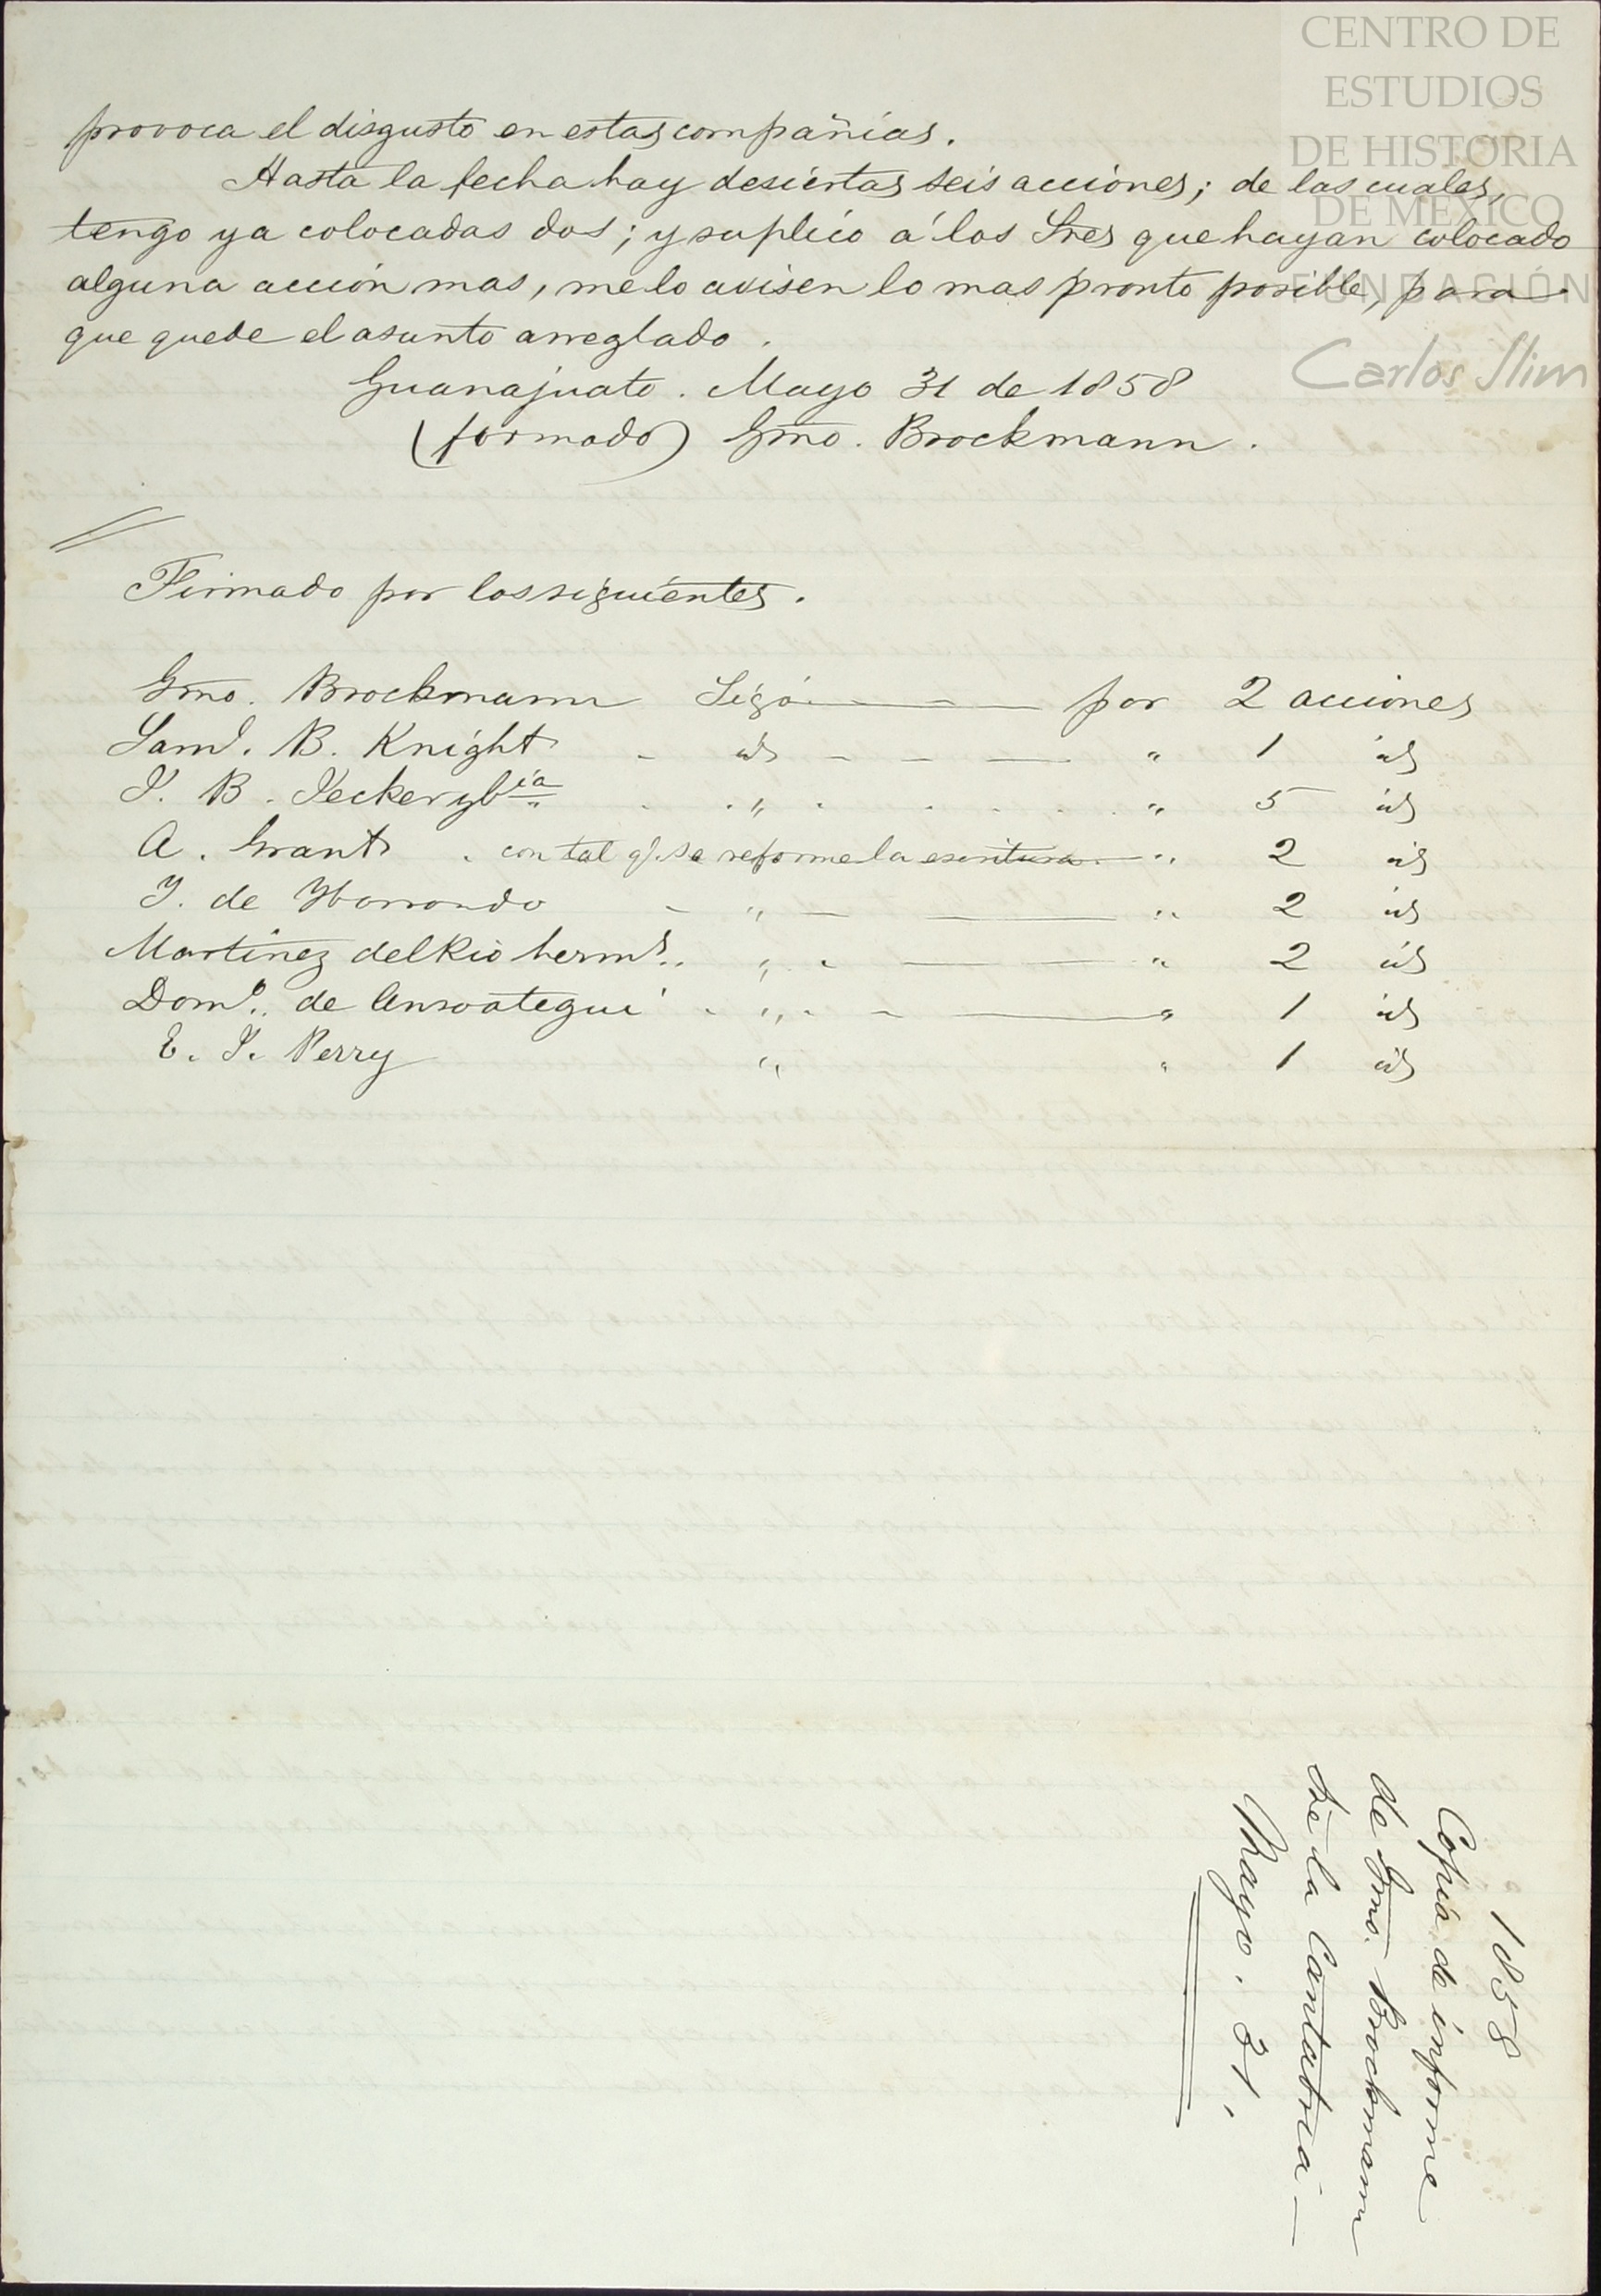 CENTRO DE
ESTUDIOS
DE HISTORIA
DE MÉXICO
FUNDACIÓN
Carlos Slim
provoca el disgusto en estas compañias.
Hasta la fecha hay desiertas seis acciones; de las cuales,
tengo ya colocadas dos; y suplico á los Sres que hayan colocado
alguna acción mas, me lo avisen lo mas pronto posible, para
que quede el asunto arreglado.
Guanajuato. Mayo 31 de 1858
(formado) Gmo. Brockmann.
Firmado por los siguientes.
Gmo. Brockmann Sigó por 2 acciones
Saml. B. Knight - id - - — " 1 id
J. B. Jecker y Cia " " 5 id
A. Grant . con tal q. se reforme la escritura " 2 id
Y. de Yborrondo - " — — " 2 id
Martinez del Rio herms.. " - — " 2 id
Domo.. de Ansoategui " - — " 1 id
E. J. Perry " " 1 id
1858
Copia de informe
de Gmo. Brockmann
de la Cantabria —
Mayo. 31.